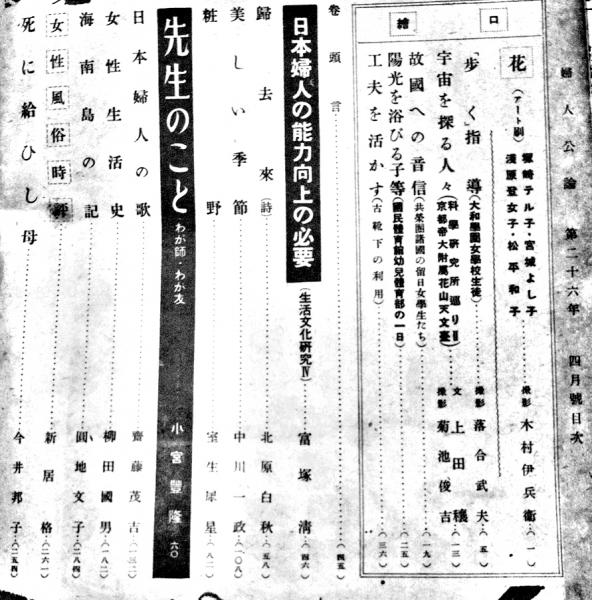 婦人公論 第二十六年 四月號目次
口繪
花(アート刷) 堀崎テル子・宮城よし子 淺原登女子・松平和子 撮影 木村伊兵衞(一)
「歩く」指導(大和學園女學校生徒) 撮影 落合武夫(五)
宇宙を探る人々(科學研究所巡りⅢ 京都帝大附屬花山天文臺) 文 上田穰 撮影 菊池俊吉(一三)
故國への音信(共榮圈諸國の留日女學生たち)(一九)
陽光を浴びる子等(國民體育館幼兒體育部の一日)(二五)
工夫を活かす(古靴下の利用)(三六)
卷頭言(四五)
日本婦人の能力向上の必要(生活文化硏究Ⅳ) 富塚淸(四六)
歸去來(詩) 北原白秋(五八)
美しい季節 中川一政(一〇八)
粧野 室生犀星(八二)
先生のこと わが師・わが友 小宮豐隆 六〇
日本婦人の歌 齋藤茂吉(一三二)
女性生活史 柳田國男(一八二)
海南島の記 圓地文子(二八四)
女性風俗時評 新居格(二六一)
死に給ひし母 今井邦子(二五四)